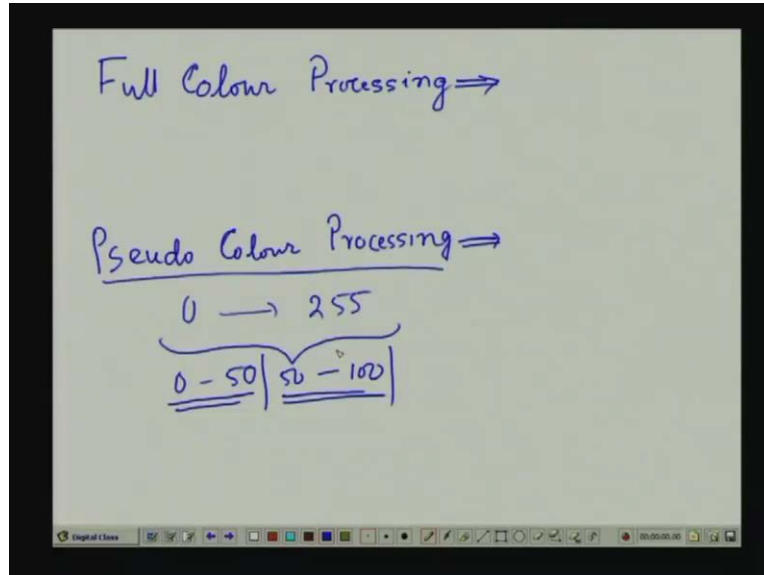 Full Colour Processing ⇒
Pseudo Colour Processing ⇒
0 → 255
0 - 50 | 50 - 100 |
Digital Class
00:00:00.00